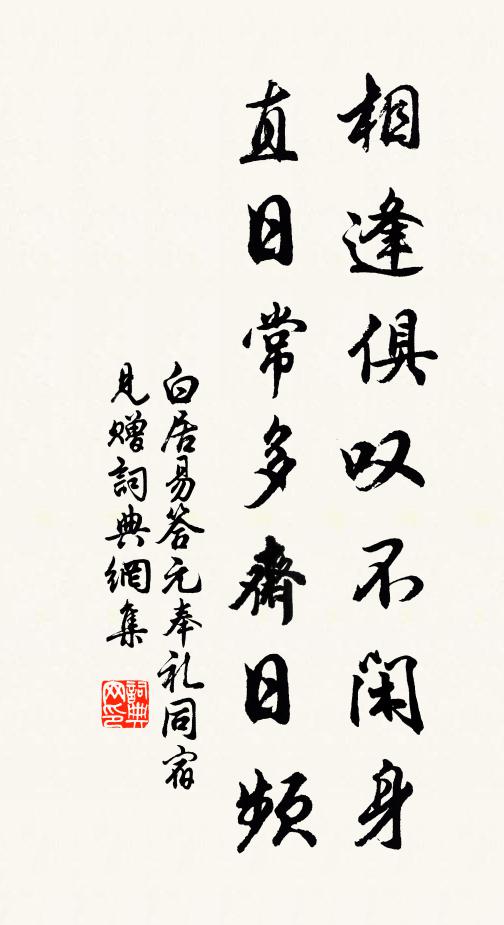 相逢俱叹不闲身
直日常多齋日頻
白居易答元奉礼同宿
見赠詞典網集
詞典网印